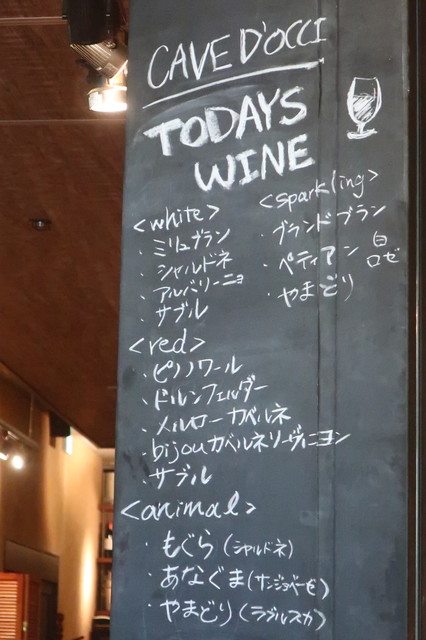 CAVE D'OCCI
TODAYS
WINE
<white>
・ミリュブラン
・シャルドネ
・アルバリーニョ
・サブル
<sparkling>
・ブランドブラン
・ペティアン 白 ロゼ
・やまどり
<red>
・ピノノワール
・ドルンフェルダー
・メルローカベルネ
・bijouカベルネソーヴィニヨン
・サブル
<animal>
・もぐら(シャルドネ)
・あなぐま(サンジョベーゼ)
・やまどり(ラブルスカ)